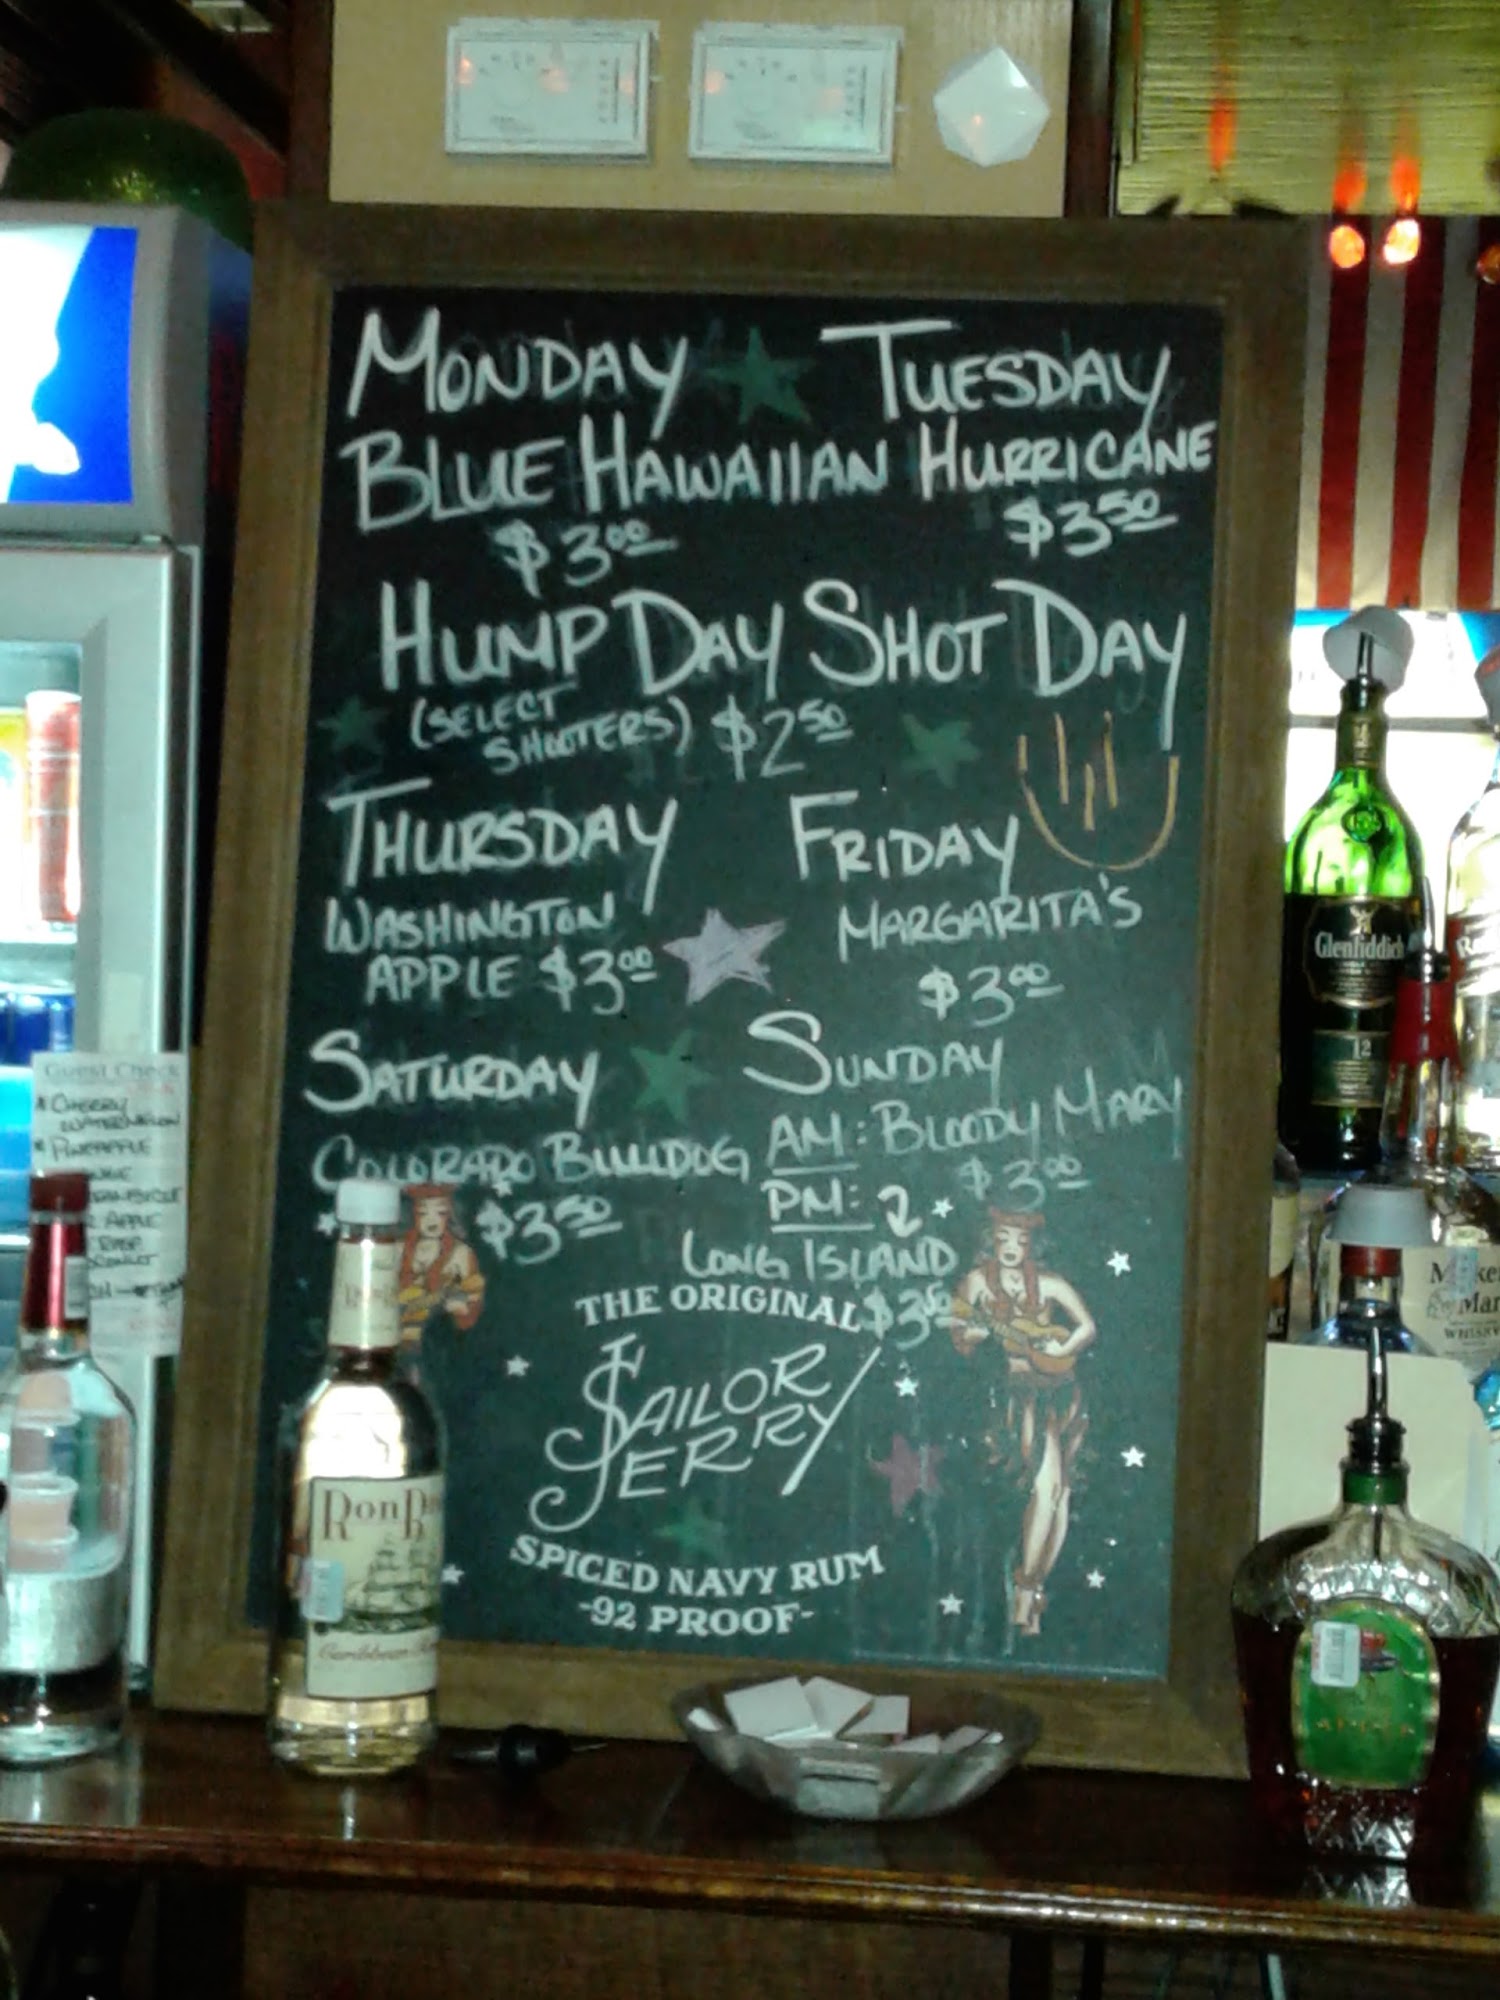 MONDAY TUESDAY
BLUE HAWAIIAN HURRICANE
$3.00 $3.50
HUMP DAY SHOT DAY
(SELECT
SHOOTERS) $2.50
THURSDAY FRIDAY
WASHINGTON MARGARITA'S
APPLE $3.00 $3.00
SATURDAY SUNDAY
COLORADO BULLDOG AM: BLOODY MARY
$3.50 $3.00
PM:
LONG ISLAND
$3.50
THE ORIGINAL
SAILOR
JERRY
SPICED NAVY RUM
-92 PROOF-
Guest Check
CHERRY
WATERMELON
PINEAPPLE
APPLE
Ron
Caribbean
Glenfiddich
12
Mar
WHISKY
APPLE